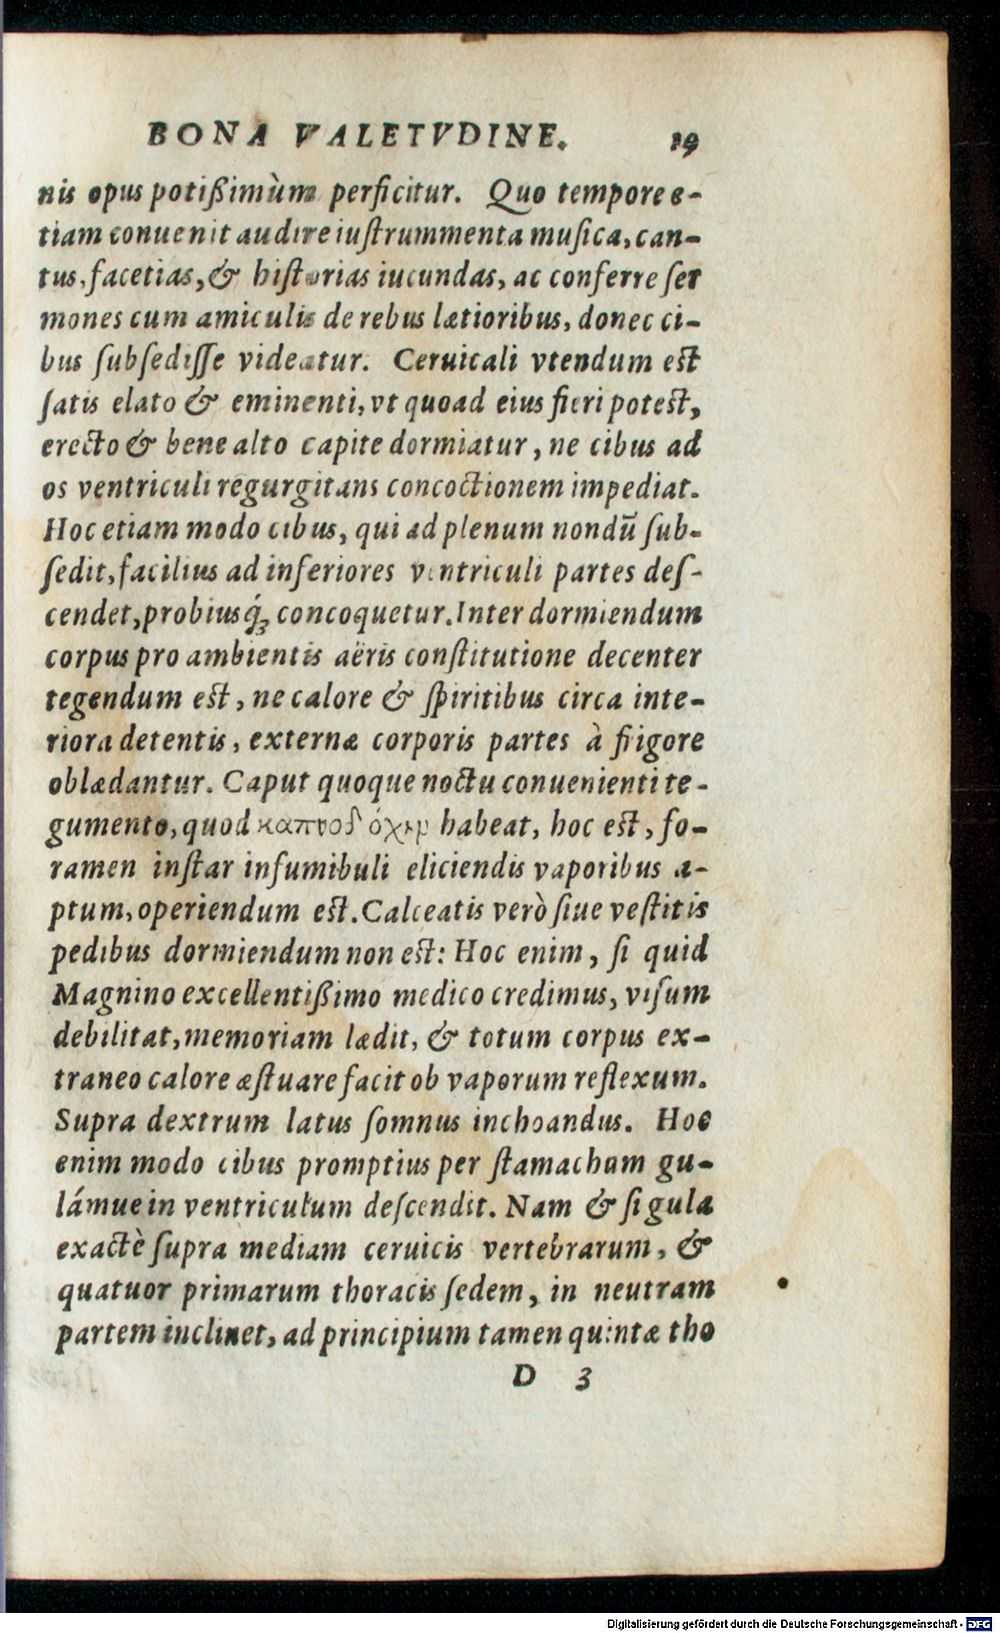 BONA VALETVDINE. 19
nis opus potißimùm perficitur. Quo tempore e-
tiam conuenit audire iuſtrummenta muſica, can-
tus, facetias, & hiſtorias iucundas, ac conferre ſer
mones cum amiculis de rebus lætioribus, donec ci-
bus ſubſediſſe videatur. Ceruicali vtendum eſt
ſatis elato & eminenti, vt quoad eius fieri poteſt,
erecto & bene alto capite dormiatur, ne cibus ad
os ventriculi regurgitans concoctionem impediat.
Hoc etiam modo cibus, qui ad plenum nondũ ſub-
ſedit, facilius ad inferiores ventriculi partes deſ-
cendet, probiusq́ꝫ concoquetur. Inter dormiendum
corpus pro ambientis aëris conſtitutione decenter
tegendum eſt, ne calore & ſpiritibus circa inte-
riora detentis, externæ corporis partes à frigore
oblædantur. Caput quoque noctu conuenienti te-
gumento, quod habeat, hoc eſt, fo-
ramen inſtar infumibuli eliciendis vaporibus a-
ptum, operiendum eſt. Calceatis verò ſiue veſtitis
pedibus dormiendum non eſt: Hoc enim, ſi quid
Magnino excellentißimo medico credimus, viſum
debilitat, memoriam lædit, & totum corpus ex-
traneo calore æſtuare facit ob vaporum reflexum.
Supra dextrum latus ſomnus inchoandus. Hoc
enim modo cibus promptius per ſtamachum gu-
lámue in ventriculum deſcendit. Nam & ſi gula
exactè ſupra mediam ceruicis vertebrarum, &
quatuor primarum thoracis ſedem, in neutram
partem inclinet, ad principium tamen quintæ tho
D 3
Digitalisierung gefördert durch die Deutsche Forschungsgemeinschaft - DFG